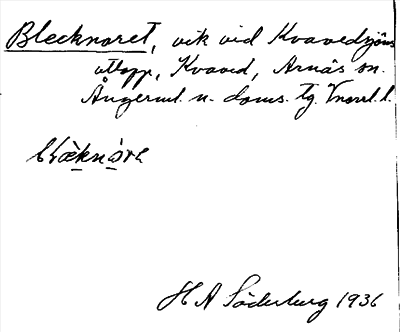 Blecknoret, vik vid Kvavedsjöns
utlopp, Kvaved, Arnäs sn.
Ångerml. n. doms. Tg. Vnorrl. l.
H A Söderberg 1936